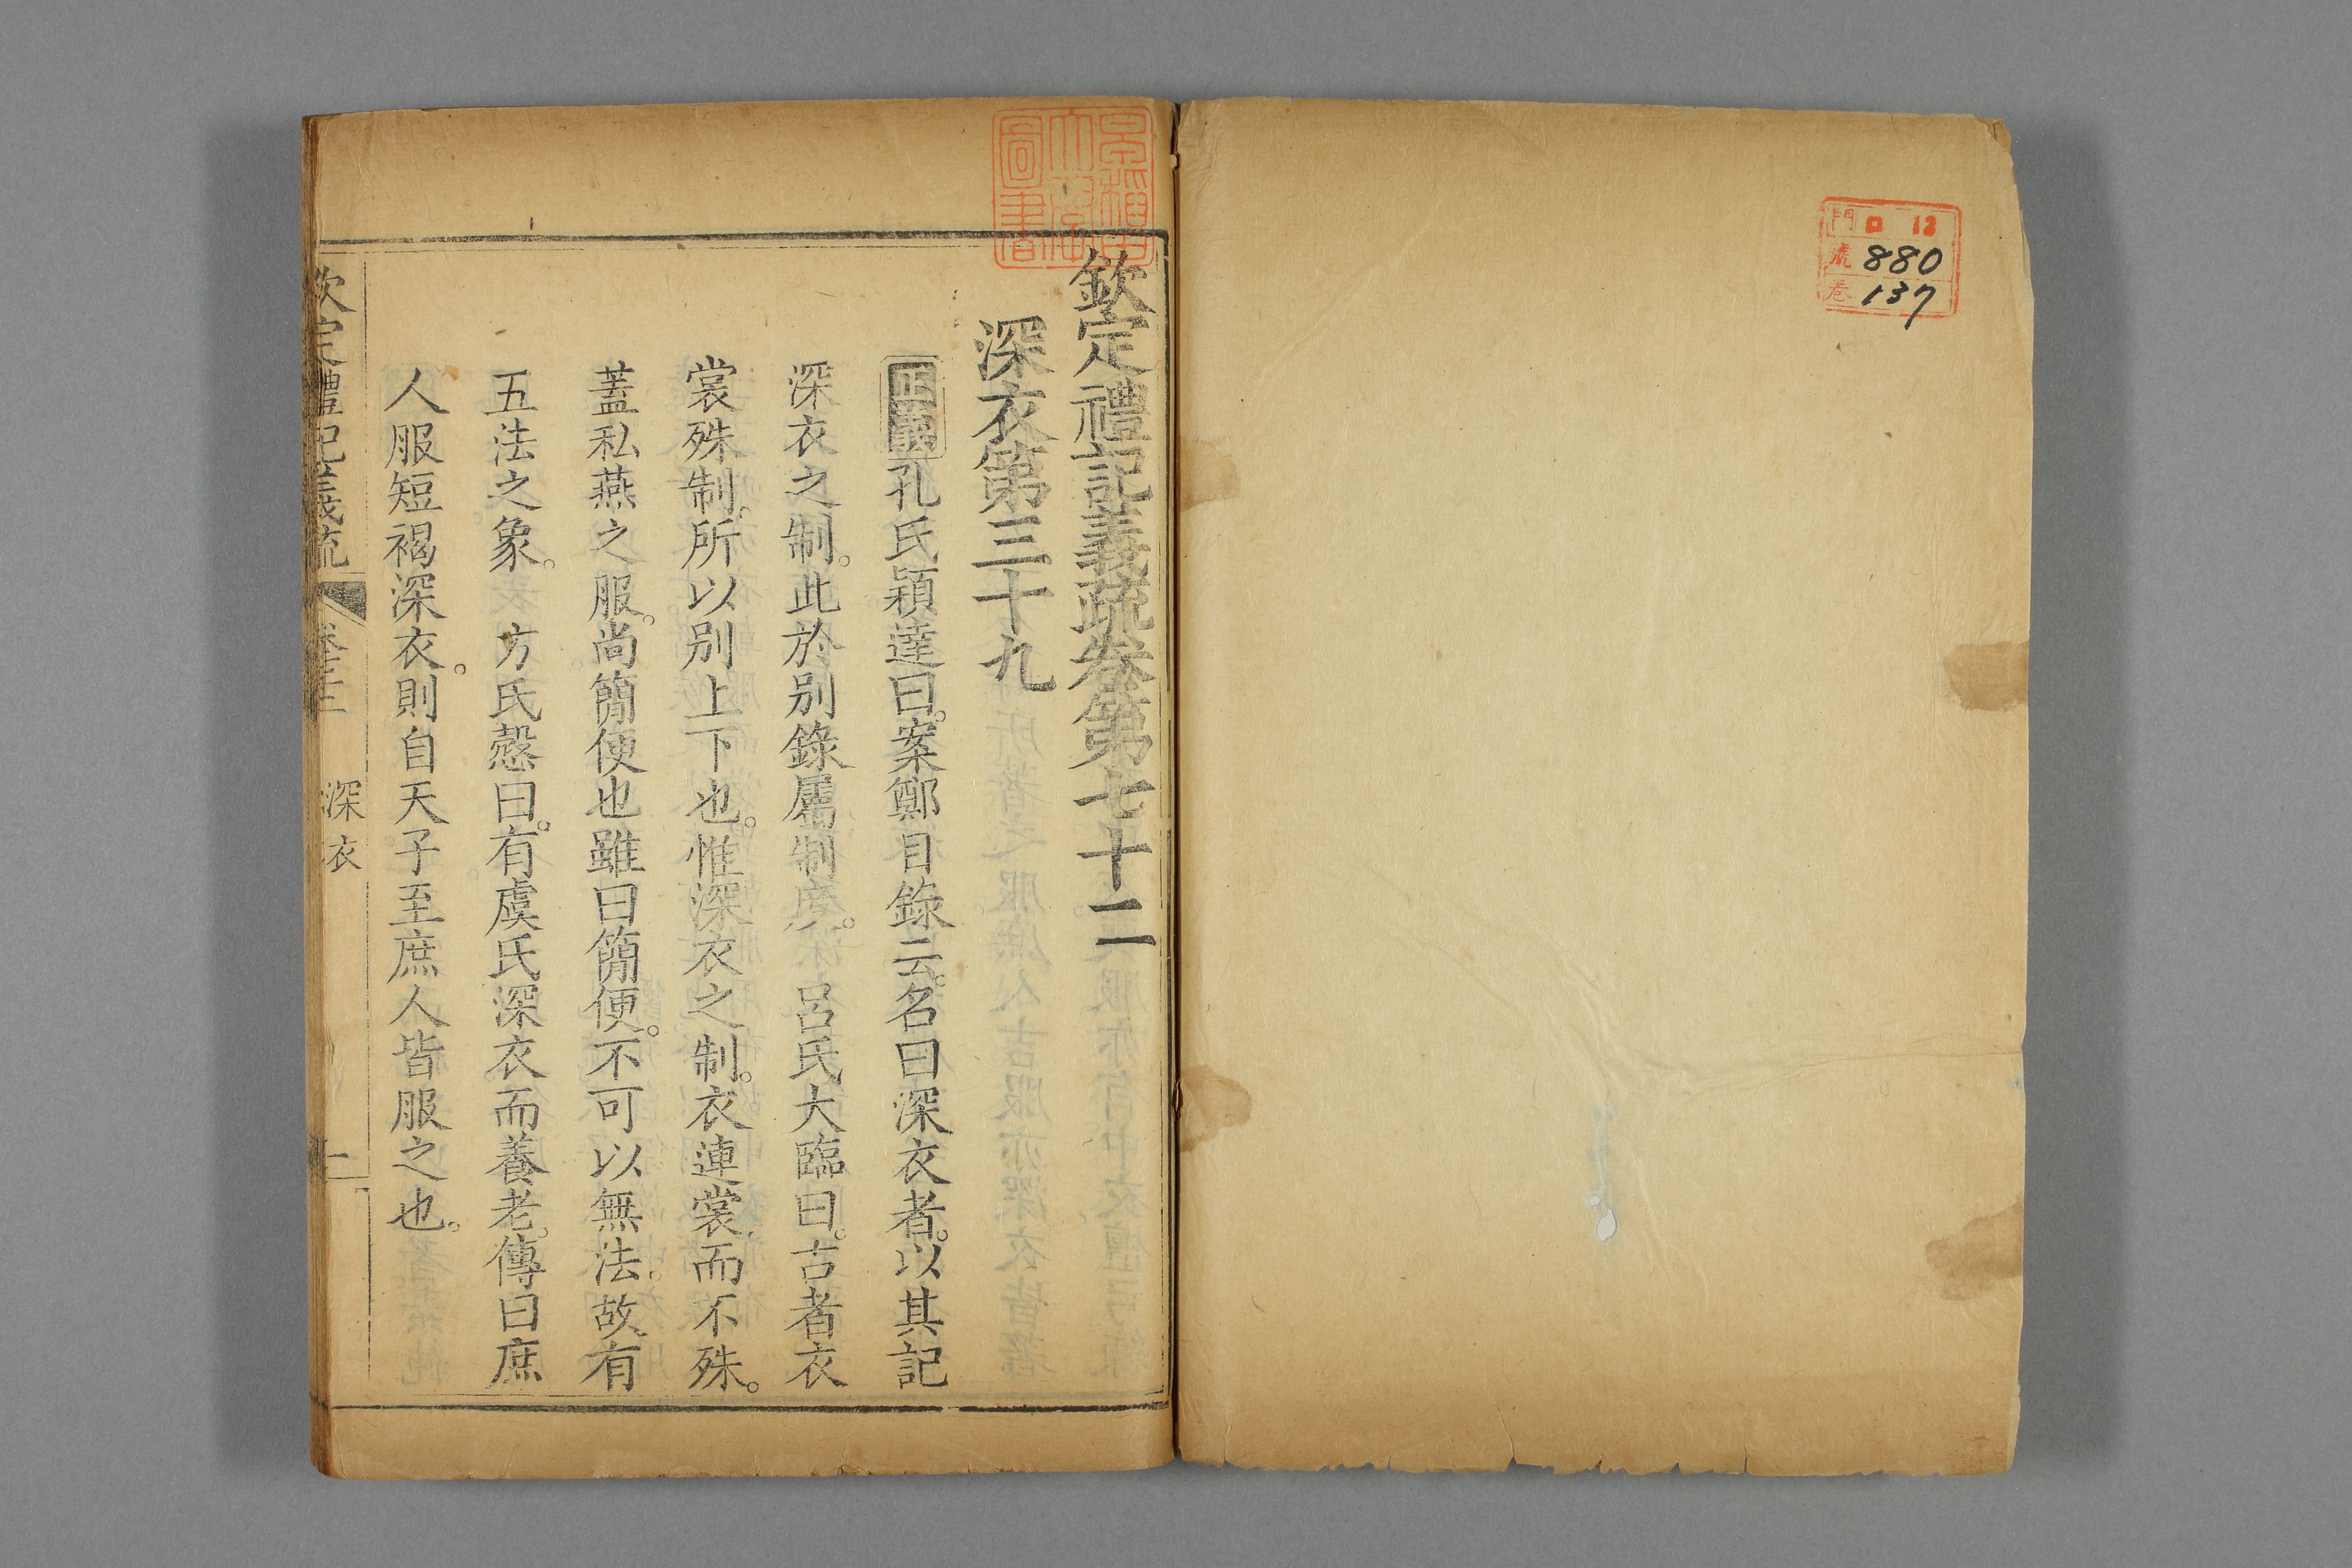 門 ロ 12
號 880
卷 137
早稲田大學圖書
欽定禮記義疏卷第七十二
深衣第三十九
正義孔氏穎達曰。案鄭目錄云。名曰深衣者。以其記
深衣之制。此於別錄屬制度。 呂氏大臨曰。古者衣
裳殊制。所以别上下也。惟深衣之制。衣連裳而不殊。
蓋私燕之服。尚簡便也雖曰簡便。不可以無法。故有
五法之象。 方氏慤曰。有虞氏深衣而養老。傳曰庶
人服短褐深衣。則自天子至庶人皆服之也。
欽定禮記義疏 卷七十二 深衣 一